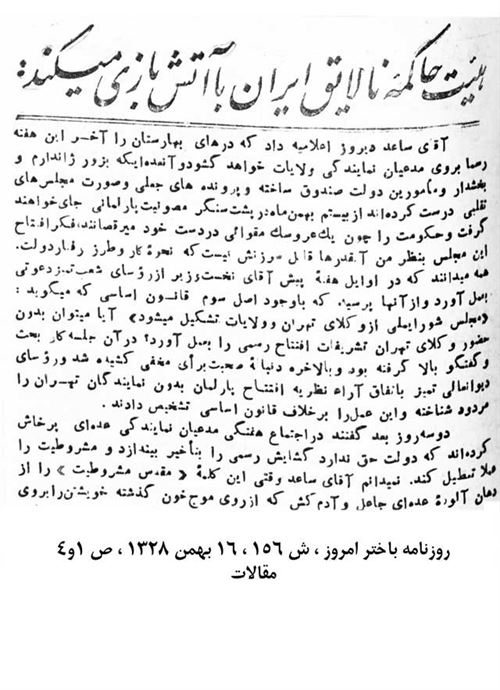 هیئت حاکمهٔ نالایق ایران با آتش بازی میکند:
آقای ساعد دیروز اعلامیه داد که درهای بهارستان را آخر این هفته
رسما بروی مدعیان نمایندگی ولایات خواهد گشود و آنده‌ایکه بزور ژاندارم و
بخشدار و مأمورین دولت صندوق ساخته و پرونده های جعلی وصورت مجلس‌های
تقلبی درست کرده‌اند از بیستم بهمن‌ماه در پشت سنگر مصونیت پارلمانی جای خواهند
گرفت و حکومت را چون یک عروسک مقوائی در دست خود میرقصانند، فکر افتتاح
این مجلس بنظر من آنقدرها قابل سرزنش نیست که نحوهٔ کار و طرز رفتار دولت.
همه میدانند که در اوایل هفتهٔ پیش آقای نخست‌وزیر از رؤسای شعب تمیز دعوتی
بعمل آورد و از آنها پرسید که باوجود اصل سوم قانون اساسی که میگوید:
«مجلس شورایملی از وکلای تهران و ولایات تشکیل میشود» آیا میتوان بدون
حضور وکلای تهران تشریفات افتتاح رسمی را بعمل آورد؟ در آن جلسه کار بحث
و گفتگو بالا گرفته بود و بالاخره دنبالهٔ صحبت برأی مخفی کشیده شد و رؤسای
دیوانعالی تمیز باتفاق آراء نظریه افتتاح پارلمان بدون نمایندگان تهران را
مردود شناخته و این عمل را برخلاف قانون اساسی تشخیص دادند.
دوسه روز بعد گفتند در اجتماع هفتگی مدعیان نمایندگی عده‌ای پرخاش
کرده‌اند که دولت حق ندارد گشایش رسمی را بتأخیر بیندازد و مشروطیت را
عملا تعطیل کند. نمیدانم آقای ساعد وقتی این کلمهٔ «مقدس مشروطیت» را از
دهان آلودهٔ عده‌ای جاعل و آدم‌کش که از روی موج خون گذشته خویشتن را بروی
روزنامه باختر امروز ، ش ۱۵۶ ، ۱۶ بهمن ۱۳۲۸ ، ص ۱و۴
مقالات